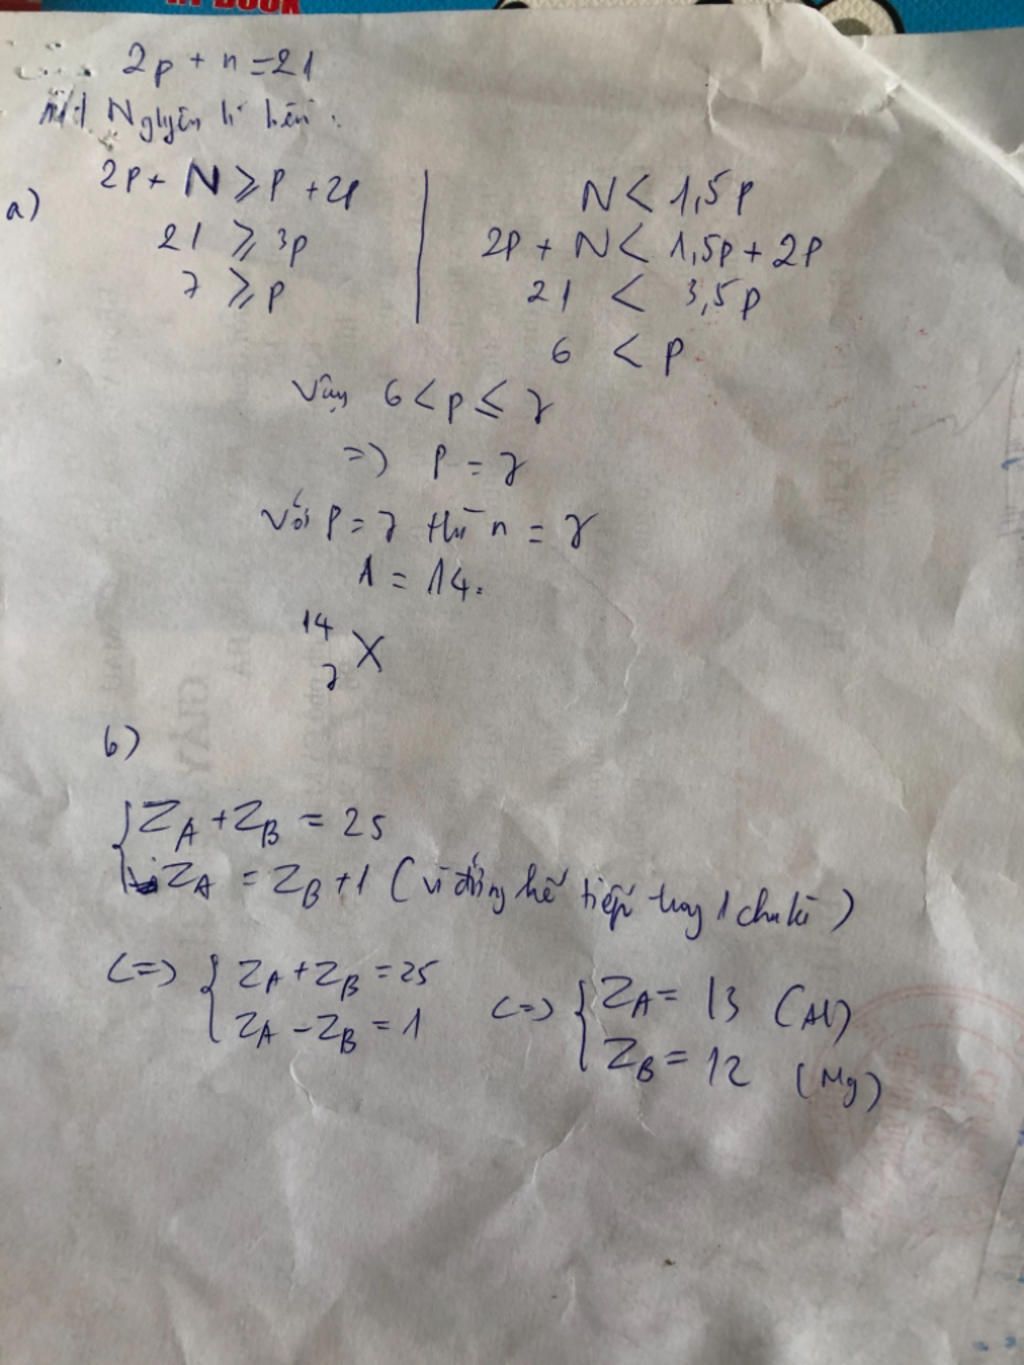 BOOK
2p + n = 21
Nglyên lí bền :
a)
2P + N ⩾ P + 2P
21 ⩾ 3p
7 ⩾ p
N < 1,5 P
2P + N < 1,5p + 2P
21 < 3,5 p
6 < p
Vậy 6 < p ≤ 7
=> P = 7
Với P = 7 thì n = 7
A = 14.
14
7 X
b)
{ ZA + ZB = 25
ZA = ZB + 1 (vì đứng kế tiếp trog 1 chu kì)
<=> { ZA + ZB = 25
ZA - ZB = 1
<=> { ZA = 13 (Al)
ZB = 12 (Mg)